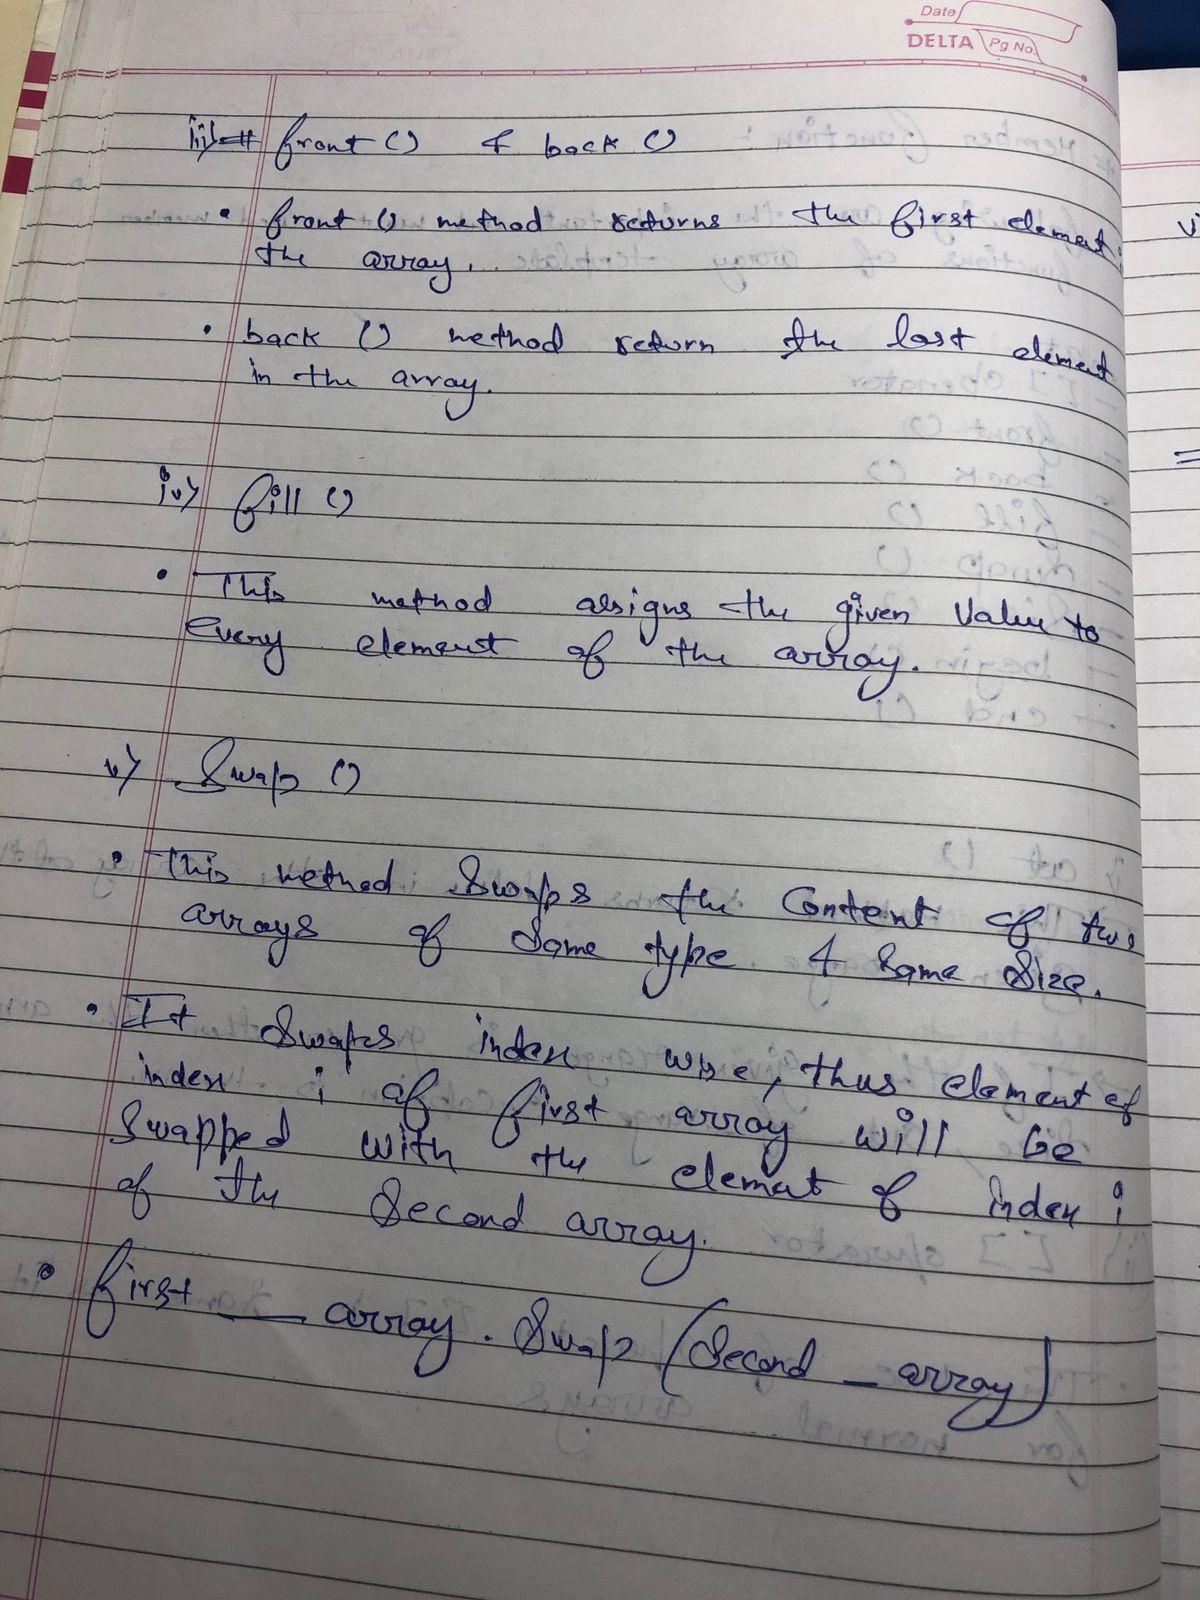 Date
DELTA Pg No.
iii) # front () & back ()
• front () method returns the first element
the array.
• back () method return the last element
in the array.
iv) fill ()
• This method assigns the given value to
every element of the array.
v) Swap ()
• This method Swaps the Content of two
arrays of Same type & Same Size.
• It Swaps index wise, thus element of
index i of first array will be
Swapped with the element of index i
of the Second array.
• first _ array . Swap (Second _ array)